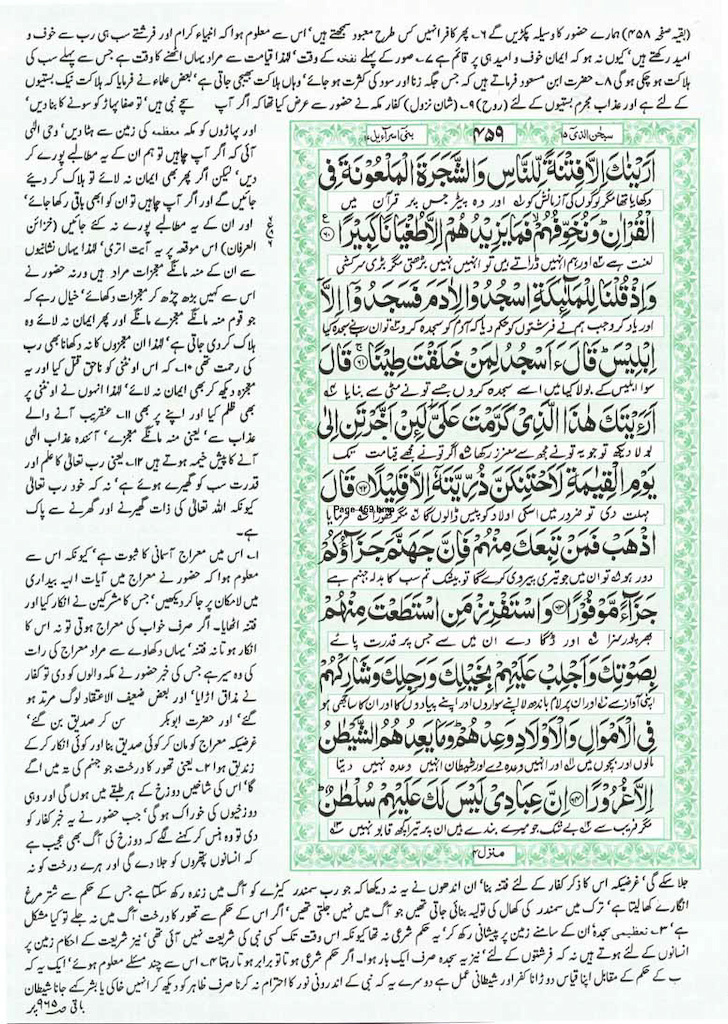 (بقیہ صفحہ ۴۵۸) ہمارے حضور کا وسیلہ پکڑیں گے ۶۔ پھر کافر انہیں کس طرح معبود سمجھتے ہیں' اس سے معلوم ہوا کہ انبیاء کرام اور فرشتے سب ہی رب سے خوف و
امید رکھتے ہیں' کیوں نہ ہو کہ ایمان خوف و امید ہی پر قائم ہے ۷۔ صور کے پہلے نفخہ کے وقت' لہٰذا قیامت سے مراد یہاں اٹھنے کا وقت ہے جس سے پہلے سب کی
ہلاکت ہو چکی ہو گی ۸۔ حضرت ابن مسعود فرماتے ہیں کہ جس جگہ زنا اور سود کی کثرت ہو جائے' وہاں ہلاکت بھیجی جاتی ہے' بعض علماء نے فرمایا کہ ہلاکت نیک بستیوں
کے لئے ہے اور عذاب مجرم بستیوں کے لئے (روح) ۹۔ (شان نزول) کفار مکہ نے حضور سے عرض کیا تھا کہ اگر آپ سچے نبی ہیں' تو صفا پہاڑ کو سونے کا بنا دیں'
اور پہاڑوں کو مکہ معظمہ کی زمین سے ہٹا دیں' وحی الٰہی
آئی کہ اگر آپ چاہیں تو ہم ان کے یہ مطالبے پورے کر
دیں' لیکن اگر پھر بھی ایمان نہ لائے تو ہلاک کر دیئے
جائیں گے اور اگر آپ چاہیں تو ان کو ابھی باقی رکھا جائے'
اور ان کے یہ مطالبے پورے نہ کئے جائیں (خزائن
العرفان) اس موقعہ پر یہ آیت اتری' لہٰذا یہاں نشانیوں
سے ان کے منہ مانگے معجزات مراد ہیں ورنہ حضور نے
اس سے کہیں بڑھ چڑھ کر معجزات دکھائے' خیال رہے کہ
جو قوم منہ مانگے معجزے مانگے اور پھر ایمان نہ لائے وہ
ہلاک کر دی جاتی ہے' لہٰذا ان معجزوں کا نہ دکھانا بھی رب
کی رحمت تھی ۱۰۔ کہ اس اونٹنی کو ناحق قتل کیا اور یہ
معجزہ دیکھ کر بھی ایمان نہ لائے' لہٰذا انہوں نے اونٹنی پر
بھی ظلم کیا اور اپنے پر بھی ۱۱۔ عنقریب آنے والے
عذاب سے' یعنی منہ مانگے معجزے' آئندہ عذاب الٰہی
آنے کا پیش خیمہ ہوتے ہیں ۱۲۔ یعنی رب تعالیٰ کا علم اور
قدرت سب کو گھیرے ہوئے ہے' نہ کہ خود رب تعالیٰ
کیونکہ اللہ تعالیٰ کی ذات گھیرنے اور گھرنے سے پاک
ہے۔
۱۔ اس میں معراج آسمانی کا ثبوت ہے' کیونکہ اس سے
معلوم ہوا کہ حضور نے معراج میں آیات الہیہ بیداری
میں لامکان پر جا کر دیکھیں' جس کا مشرکین نے انکار کیا اور
فتنہ اٹھایا۔ اگر صرف خواب کی معراج ہوتی تو نہ اس کا
انکار ہوتا نہ فتنہ' یہاں دکھاوے سے مراد معراج کی رات
کی وہ سیر ہے جس کی خبر حضور نے مکہ والوں کو دی تو کفار
نے مذاق اڑایا' اور بعض ضعیف الاعتقاد لوگ مرتد ہو
گئے' اور حضرت ابوبکر سن کر صدیق بن گئے'
غرضیکہ معراج کو مان کر کوئی صدیق بنا اور کوئی انکار کر کے
زندیق ہوا ۲۔ یعنی تھور کا درخت جو جہنم کی تہ میں اگے
گا' اس کی شاخیں دوزخ کے ہر طبقے میں ہوں گی اور وہی
دوزخیوں کی خوراک ہو گی' جب حضور نے یہ خبر کفار کو
دی تو وہ ہنس کر کہنے لگے کہ دوزخ کی آگ بھی عجیب ہے
کہ انسانوں پتھروں کو جلا دے گی اور ہرے درخت کو نہ
سبحٰن الذی ۱۵
۴۵۹
بنی اسرآءیل ۱۷
اَرَيْنٰكَ اِلَّا فِتْنَةً لِّلنَّاسِ وَالشَّجَرَةَ الْمَلْعُوْنَةَ فِى
دکھایا تھا مگر لوگوں کی آزمائش کو اور وہ پیڑ جس پر قرآن میں
الْقُرْاٰنِ ؕ وَنُخَوِّفُهُمْ ۙ فَمَا يَزِيْدُهُمْ اِلَّا طُغْيَانًا كَبِيْرًا ﴿۶۰﴾
لعنت ہے اور ہم انہیں ڈراتے ہیں تو انہیں نہیں بڑھتی مگر بڑی سرکشی
وَاِذْ قُلْنَا لِلْمَلٰٓئِكَةِ اسْجُدُوْا لِاٰدَمَ فَسَجَدُوْۤا اِلَّاۤ
اور یاد کرو جب ہم نے فرشتوں کو حکم دیا کہ آدم کو سجدہ کرو تو ان سب نے سجدہ کیا
اِبْلِيْسَ ؕ قَالَ ءَاَسْجُدُ لِمَنْ خَلَقْتَ طِيْنًا ﴿۶۱﴾ قَالَ
سوا ابلیس کے بولا کیا میں اسے سجدہ کروں جسے تو نے مٹی سے بنایا
اَرَءَيْتَكَ هٰذَا الَّذِىْ كَرَّمْتَ عَلَىَّ لَئِنْ اَخَّرْتَنِ اِلٰى
بولا دیکھ تو جو یہ تو نے مجھ سے معزز رکھا اگر تو نے مجھے قیامت تک
يَوْمِ الْقِيٰمَةِ لَاَحْتَنِكَنَّ ذُرِّيَّتَهٗۤ اِلَّا قَلِيْلًا ﴿۶۲﴾ قَالَ
Page-459.bmp
مہلت دی تو ضرور میں اسکی اولاد کو پیس ڈالوں گا مگر تھوڑا فرمایا
اذْهَبْ فَمَنْ تَبِعَكَ مِنْهُمْ فَاِنَّ جَهَنَّمَ جَزَآؤُكُمْ
دور ہو تو ان میں جو تیری پیروی کرے گا تو بیشک تم سب کا بدلہ جہنم ہے
جَزَآءً مَّوْفُوْرًا ﴿۶۳﴾ وَاسْتَفْزِزْ مَنِ اسْتَطَعْتَ مِنْهُمْ
بھرپور سزا اور ڈگا دے ان میں سے جس پر قدرت پائے
بِصَوْتِكَ وَاَجْلِبْ عَلَيْهِمْ بِخَيْلِكَ وَرَجِلِكَ وَشَارِكْهُمْ
اپنی آواز سے اور ان پر لام باندھ لا اپنے سواروں اور اپنے پیادوں کا اور ان کا ساجھی ہو
فِى الْاَمْوَالِ وَالْاَوْلَادِ وَعِدْهُمْ ؕ وَمَا يَعِدُهُمُ الشَّيْطٰنُ
مالوں اور بچوں میں اور انہیں وعدہ دے اور شیطان انہیں وعدہ نہیں دیتا
اِلَّا غُرُوْرًا ﴿۶۴﴾ اِنَّ عِبَادِىْ لَيْسَ لَكَ عَلَيْهِمْ سُلْطٰنٌ ؕ
مگر فریب سے بے شک جو میرے بندے ہیں ان پر تیرا کچھ قابو نہیں
منزل ۴
جلا سکے گی' غرضیکہ اس کا ذکر کفار کے لئے فتنہ بنا' ان اندھوں نے یہ نہ دیکھا کہ جو رب سمندر کیڑے کو آگ میں زندہ رکھ سکتا ہے جس کے حکم سے شتر مرغ
انگارے کھا لیتا ہے' ترک میں سمندر کی کھال کی تولیہ بنائی جاتی تھیں جو آگ میں نہیں جلتی تھیں' اگر اس کے حکم سے تھور کا درخت آگ میں نہ جلے تو کیا مشکل
ہے' ۳۔ تعظیمی سجدہ' ان کے سامنے زمین پر پیشانی رکھ کر' یہ حکم شرعی نہ تھا کیونکہ اس وقت تک کسی نبی کی شریعت نہیں آئی تھی' نیز شریعت کے احکام زمین پر
انسانوں کے لئے ہوتے ہیں نہ کہ فرشتوں کے لئے' نیز یہ سجدہ صرف ایک بار ہوا۔ اگر حکم شرعی ہوتا تو برابر ہوتا رہتا ۴۔ اس سے چند مسئلے معلوم ہوئے' ایک یہ کہ
ب کے حکم کے مقابل اپنا قیاس دوڑانا کفر اور شیطانی عمل ہے دوسرے یہ کہ نبی کے اندرونی نور کا احترام نہ کرنا صرف ظاہر کو دیکھ کر انہیں خاکی یا بشر کہے جانا شیطان
باقی صـ ۹۶۵ پر